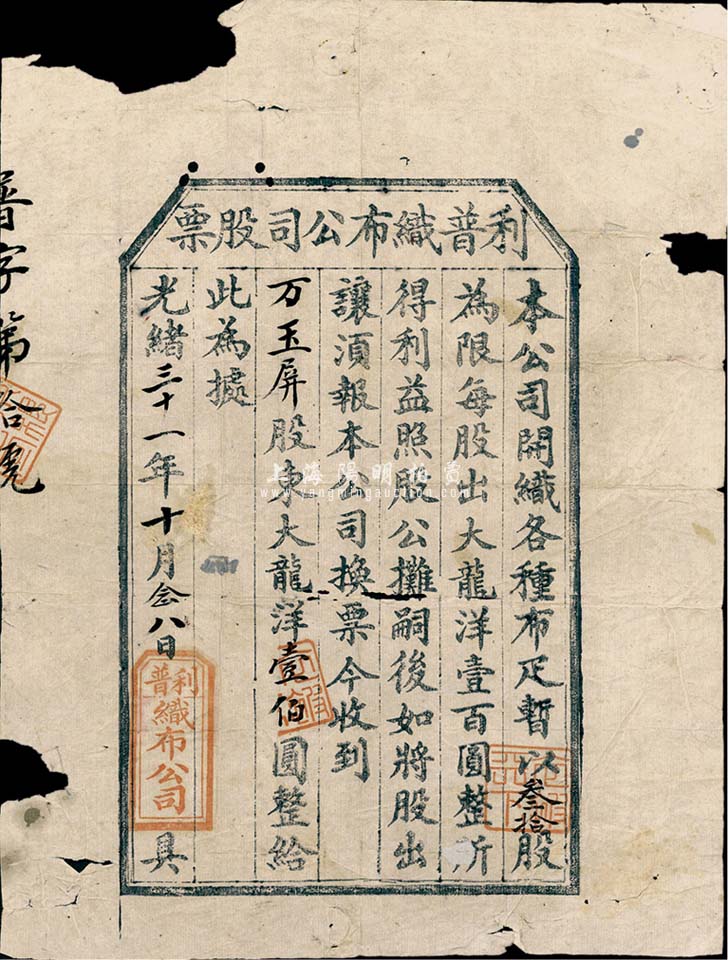 利普織布公司股票
本公司開織各種布疋暫以叄拾股
為限每股出大龍洋壹百圓整所
得利益照股公攤嗣後如將股出
讓須報本公司換票今收到
万玉屏股東大龍洋壹佰圓整給
此為據
光緒三十一年十月念八日 具
利普
織布公司
普字第拾號
上海陽明拍賣
www.yangmingauction.com